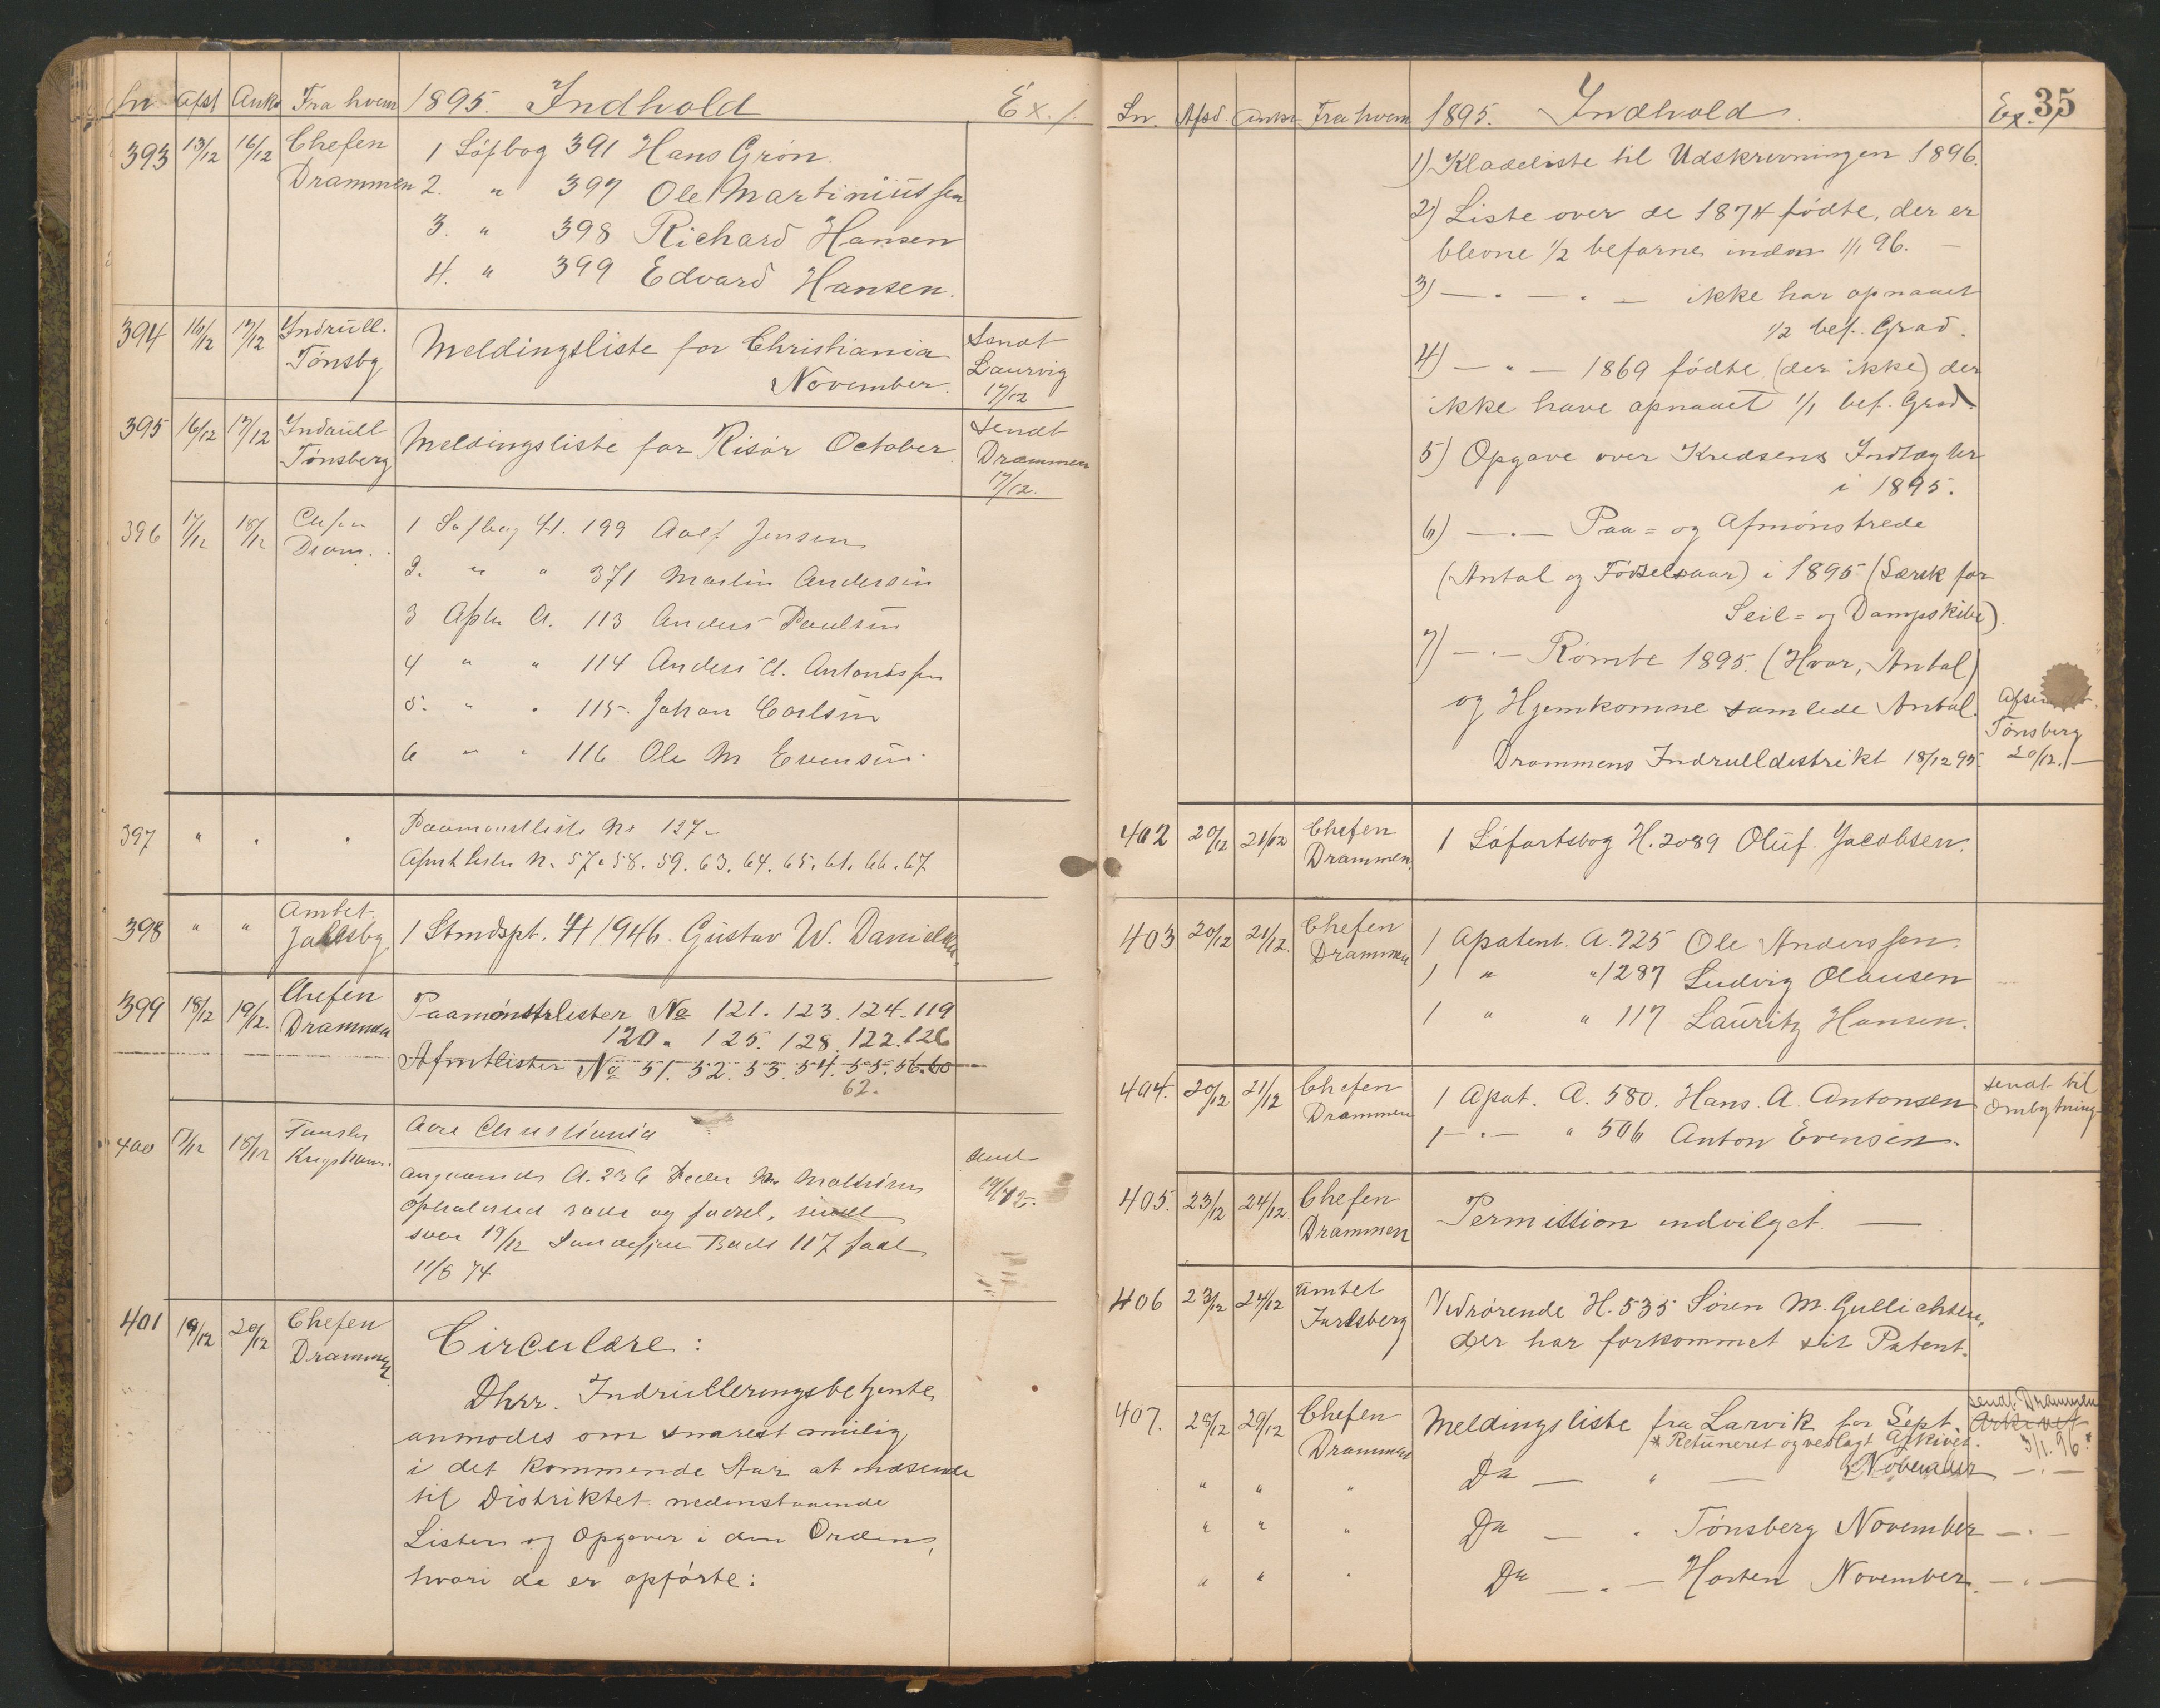 Ln Afst Ank. Fra hvem 1895. Indhold Ex. /.
393 13/12 16/12 Chefen Drammen 1 Søfbog 391 Hans Grøn.
2. " 397 Ole Martiniussen
3. " 398 Richard Hansen
4. " 399 Edvard Hansen.
394 16/12 17/12 Indrull. Tönsbg Meldingsliste for Christiania November. Sendt Laurvig 17/12
395 16/12 17/12 Indrull Tönsberg Meldingsliste for Risör October. Sendt Drammen 17/12.
396 17/12 18/12 Chefen Dram. 1 Søfbog H. 199 Jensen
2. " " 371 Martin Andersen
3 A. 113 Anders Paulsen
4 " " 114 Anders A. Antonissen
5. " " 115. Johan Carlsen
6 " " 116. Ole M Evensen.
397 " " " Paamönstliste No 127.
N. 57. 58. 59. 63. 64. 65. 61. 66. 67
398 " " Amtet Jarlsbg 1 Stmdspt. H 1946. Gustav W. Danielsen.
399 18/12 19/12. Chefen Drammen Paamönstrlister No 121. 123. 124. 119
120. 125. 128. 122. 126
Afmtlister No 51. 52. 53. 54. 55. 56. 60
62.
400 17/12 18/12 Christiania
A. 236 Peder
og
19/12 117
11/8 74
401 19/12 20/12 Chefen Drammen Circulære:
Dhrr. Indrulleringsbetjente
anmodes om snarest mulig
i det kommende Aar at indsende
til Distriktet nedenstaaende
Lister og Opgaver i den Orden,
hvori de er opførte:
35
Ln. Afsd. Ankt. Fra hvem 1895. Indhold. Ex. /.
1) Kladeliste til Udskrivningen 1896.
2) Liste over de 1874 fødte, der er
blevne 1/2 befarne inden 1/1 96. —
3) — " — " — ikke har opnaaet
1/2 bef. Grad.
4) — " — 1869 fødte (der ikke) der
ikke have opnaaet 1/1 bef. Grad.
5) Opgave over Kredsens Indtægter
i 1895.
6) — " — Paa = og Afmønstrede
(Antal og Fødselsaar) i 1895 (Særsk for
Seil = og Dampskibe).
7) — " — Rømte 1895. (Hvor, Antal)
og Hjemkomne samlede Antal.
Drammens Indrulldistrikt 18/12 95. Tønsberg 20/12. —
402 20/12 21/12 Chefen Drammen. 1 Søfartsbog H. 2089 Oluf. Jacobsen.
403 20/12 21/12. Chefen Drammen 1 Apatent. A. 725 Ole Anderssen.
1 " " 1287 Ludvig Olausen
1 " " 117 Lauritz Hansen.
404. 20/12 21/12 Chefen Drammen 1 Apat. A. 580. Hans. A. Antonsen sendt til Ombytning
1 — " — " 506 Anton Evensen.
405. 23/12 24/12 Chefen Drammen Permission indvilget. —
406 23/12 24/12 Amtet Jarlsberg Vedrørende H. 535 Søren M. Gullichsen,
der har forkommet sit Patent.
407. 28/12 29/12 Chefen Drammen Meldingsliste fra Larvik for Sept. Sendt. Drammen Arkivet 3/1. 96.
* Retuneret og vedlagt Arkivet.
" " " Do — " — November — " —
" " " Do — " Tønsberg November — " —
" " " Do — " — Horten November. — " —